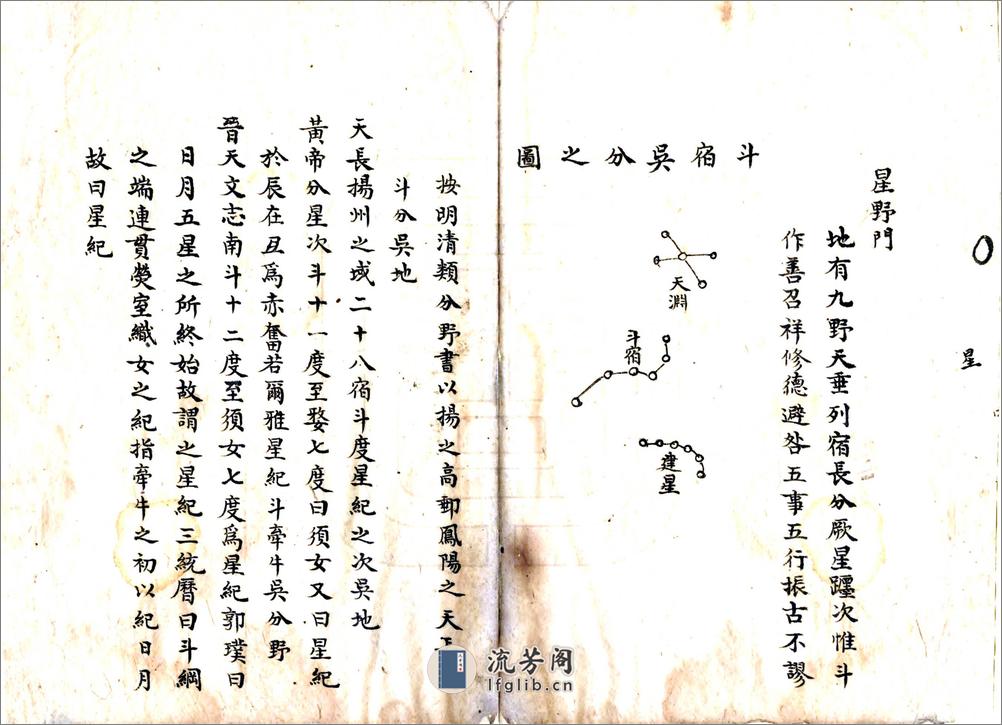 星
星野門
地有九野天垂列宿長分厥星躔次惟斗
作善召祥修德避咎五事五行振古不謬
斗宿吳分之圖
天淵
斗宿
建星
按明清類分野書以揚之高郵鳳陽之天
斗分吳地
天長揚州之域二十八宿斗度星紀之次吳地
黃帝分星次斗十一度至婺七度曰須女又曰星紀
於辰在丑爲赤奮若爾雅星紀斗牽牛吳分野
晉天文志南斗十二度至須女七度爲星紀郭璞曰
日月五星之所終始故謂之星紀三統曆曰斗綱
之端連貫熒室織女之紀指牽牛之初以紀日月
故曰星紀
流芳阁
lfglib.cn